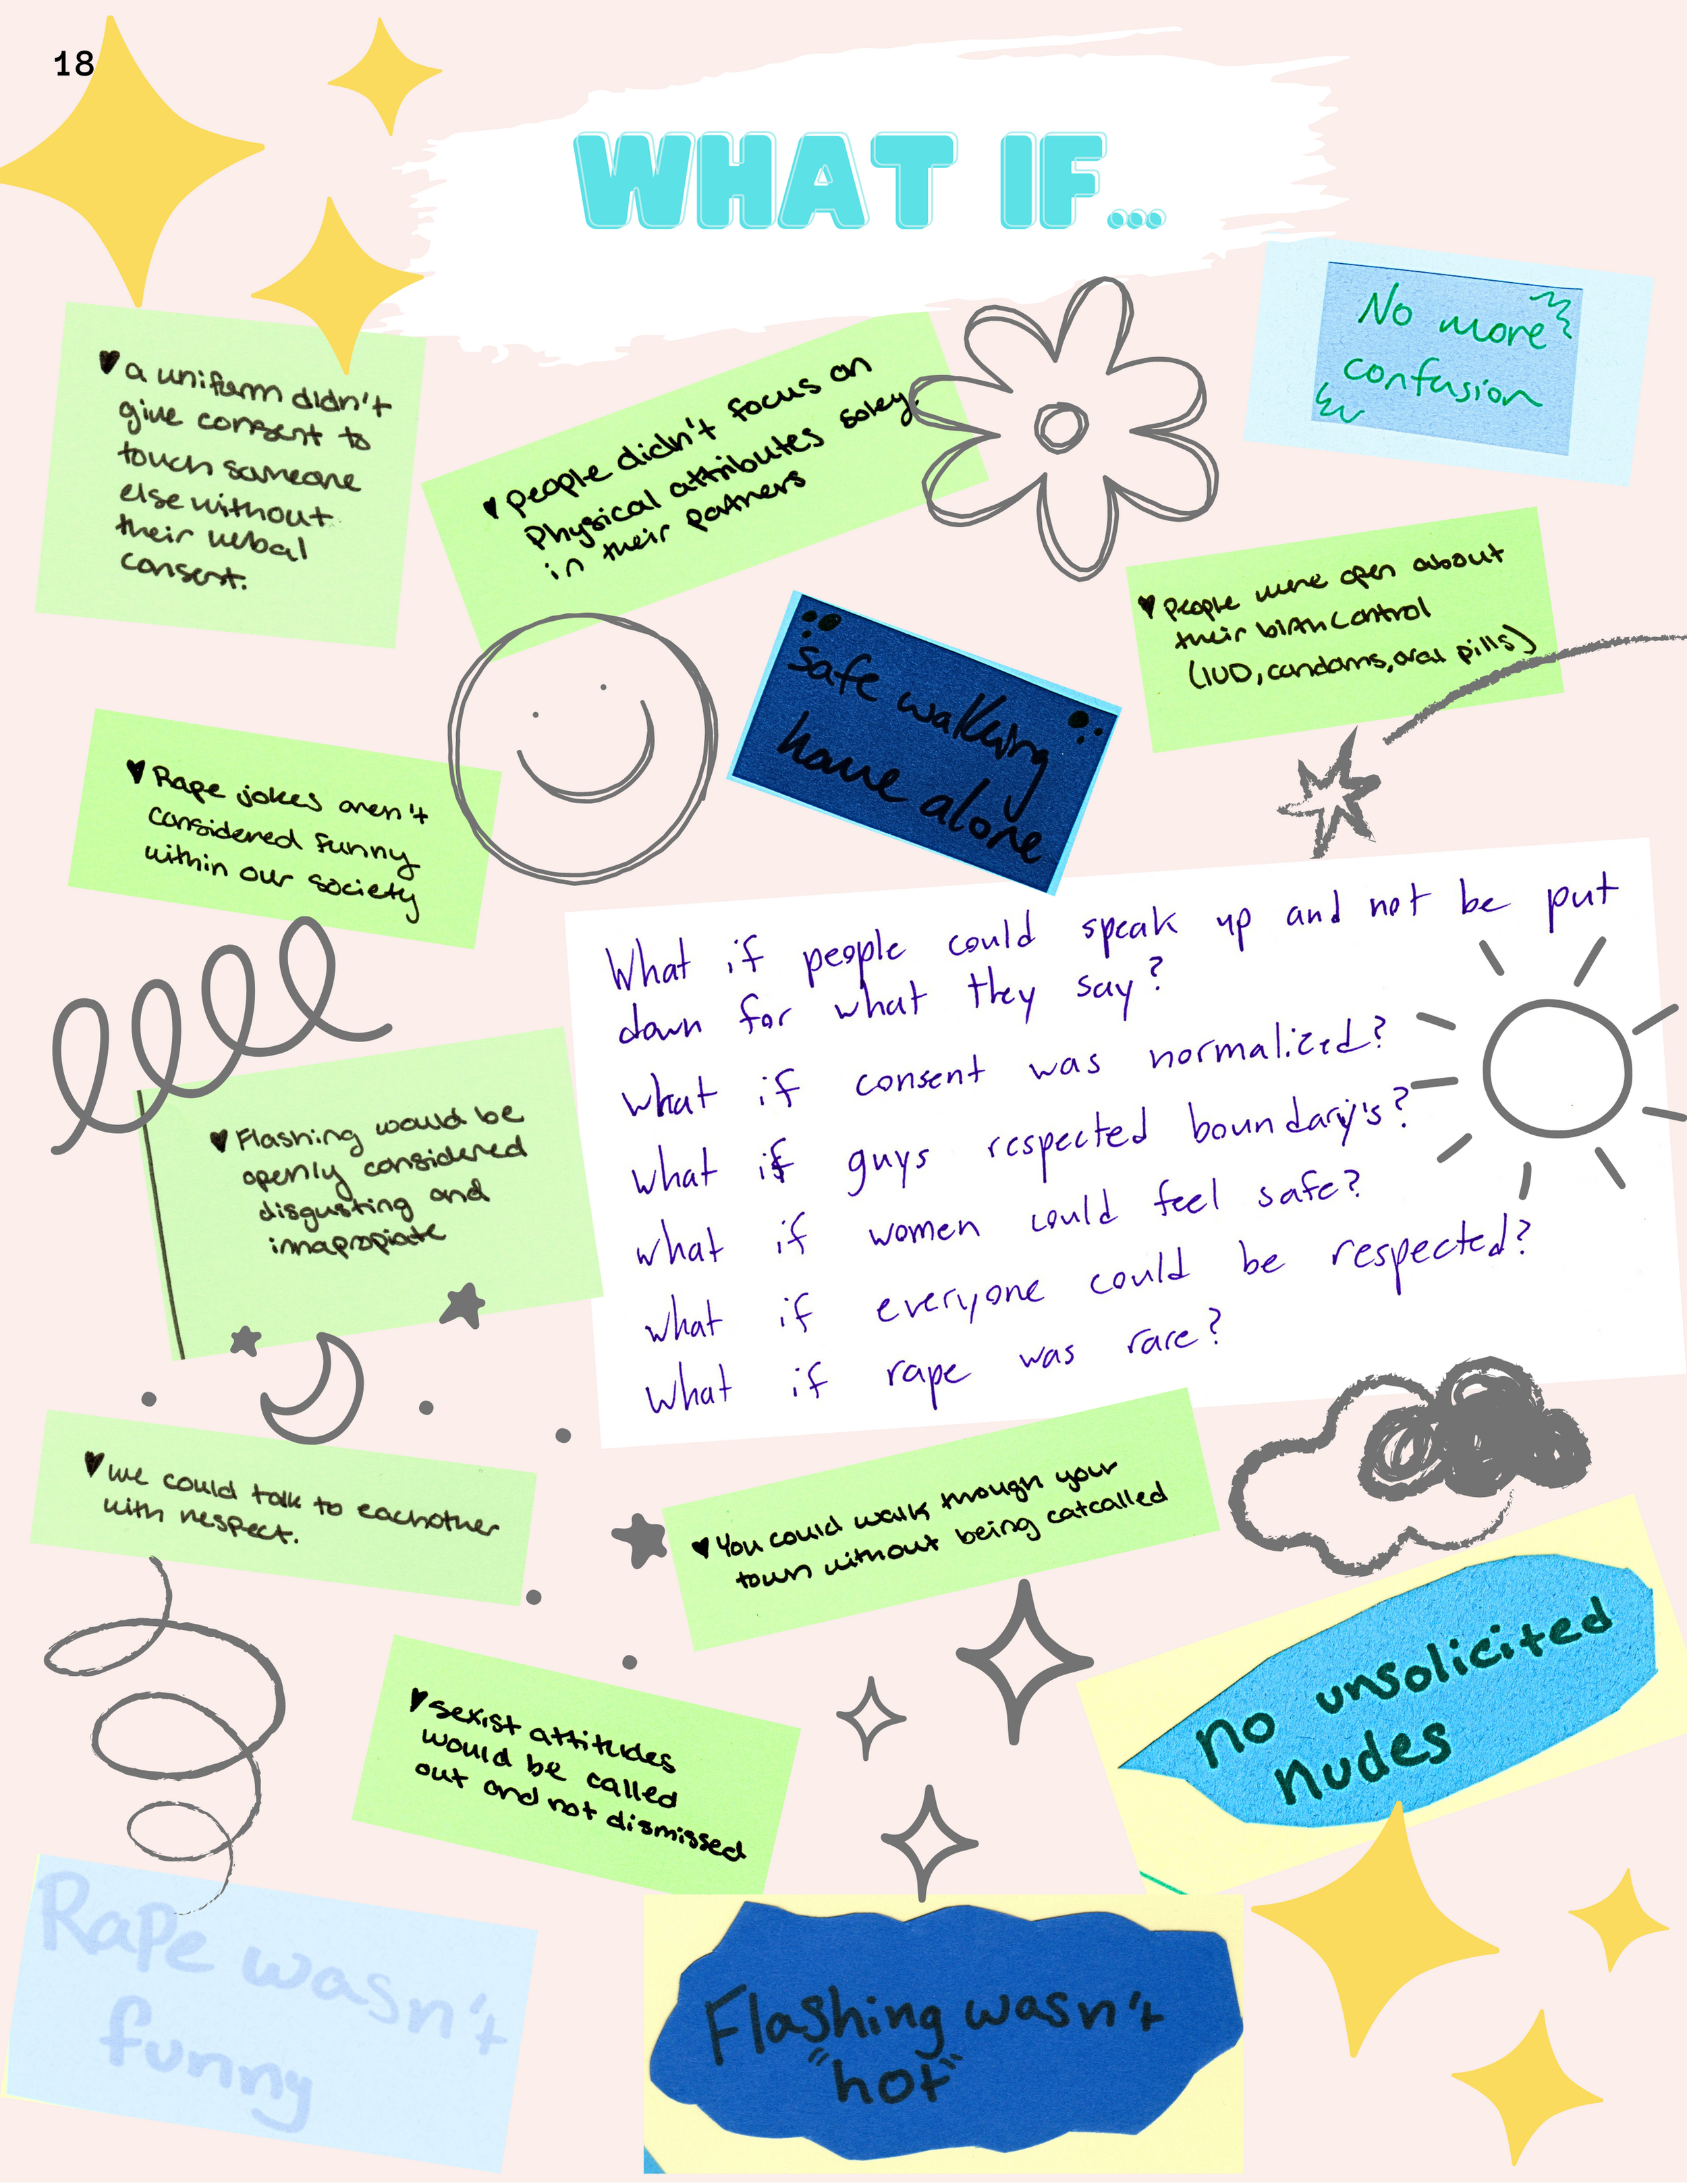 18
WHAT IF...
No more
confusion
♥ a uniform didn't
give consent to
touch someone
else without
their verbal
consent.
♥ people didn't focus on
Physical attributes soley
in their partners
♥ People were open about
their birth control
(IUD, condoms, oral pills)
safe walking
home alone
♥ Rape jokes aren't
considered funny
within our society
What if people could speak up and not be put
down for what they say?
what if consent was normalized?
what if guys respected boundary's?
what if women could feel safe?
what if everyone could be respected?
what if rape was rare?
♥ Flashing would be
openly considered
disgusting and
innapropiate
♥ we could talk to eachother
with respect.
♥ You could walk through your
town without being catcalled
no unsolicited
nudes
♥ sexist attitudes
would be called
out and not dismissed
Rape wasn't
funny
Flashing wasn't
"hot"